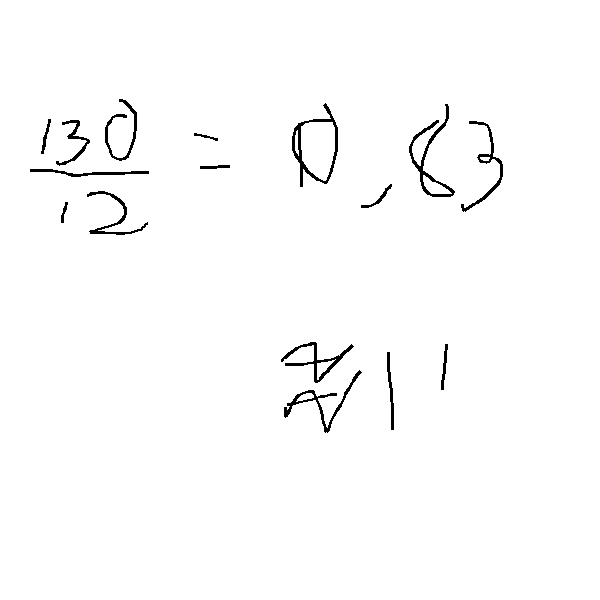 130/12 = 10,83
≈ 11